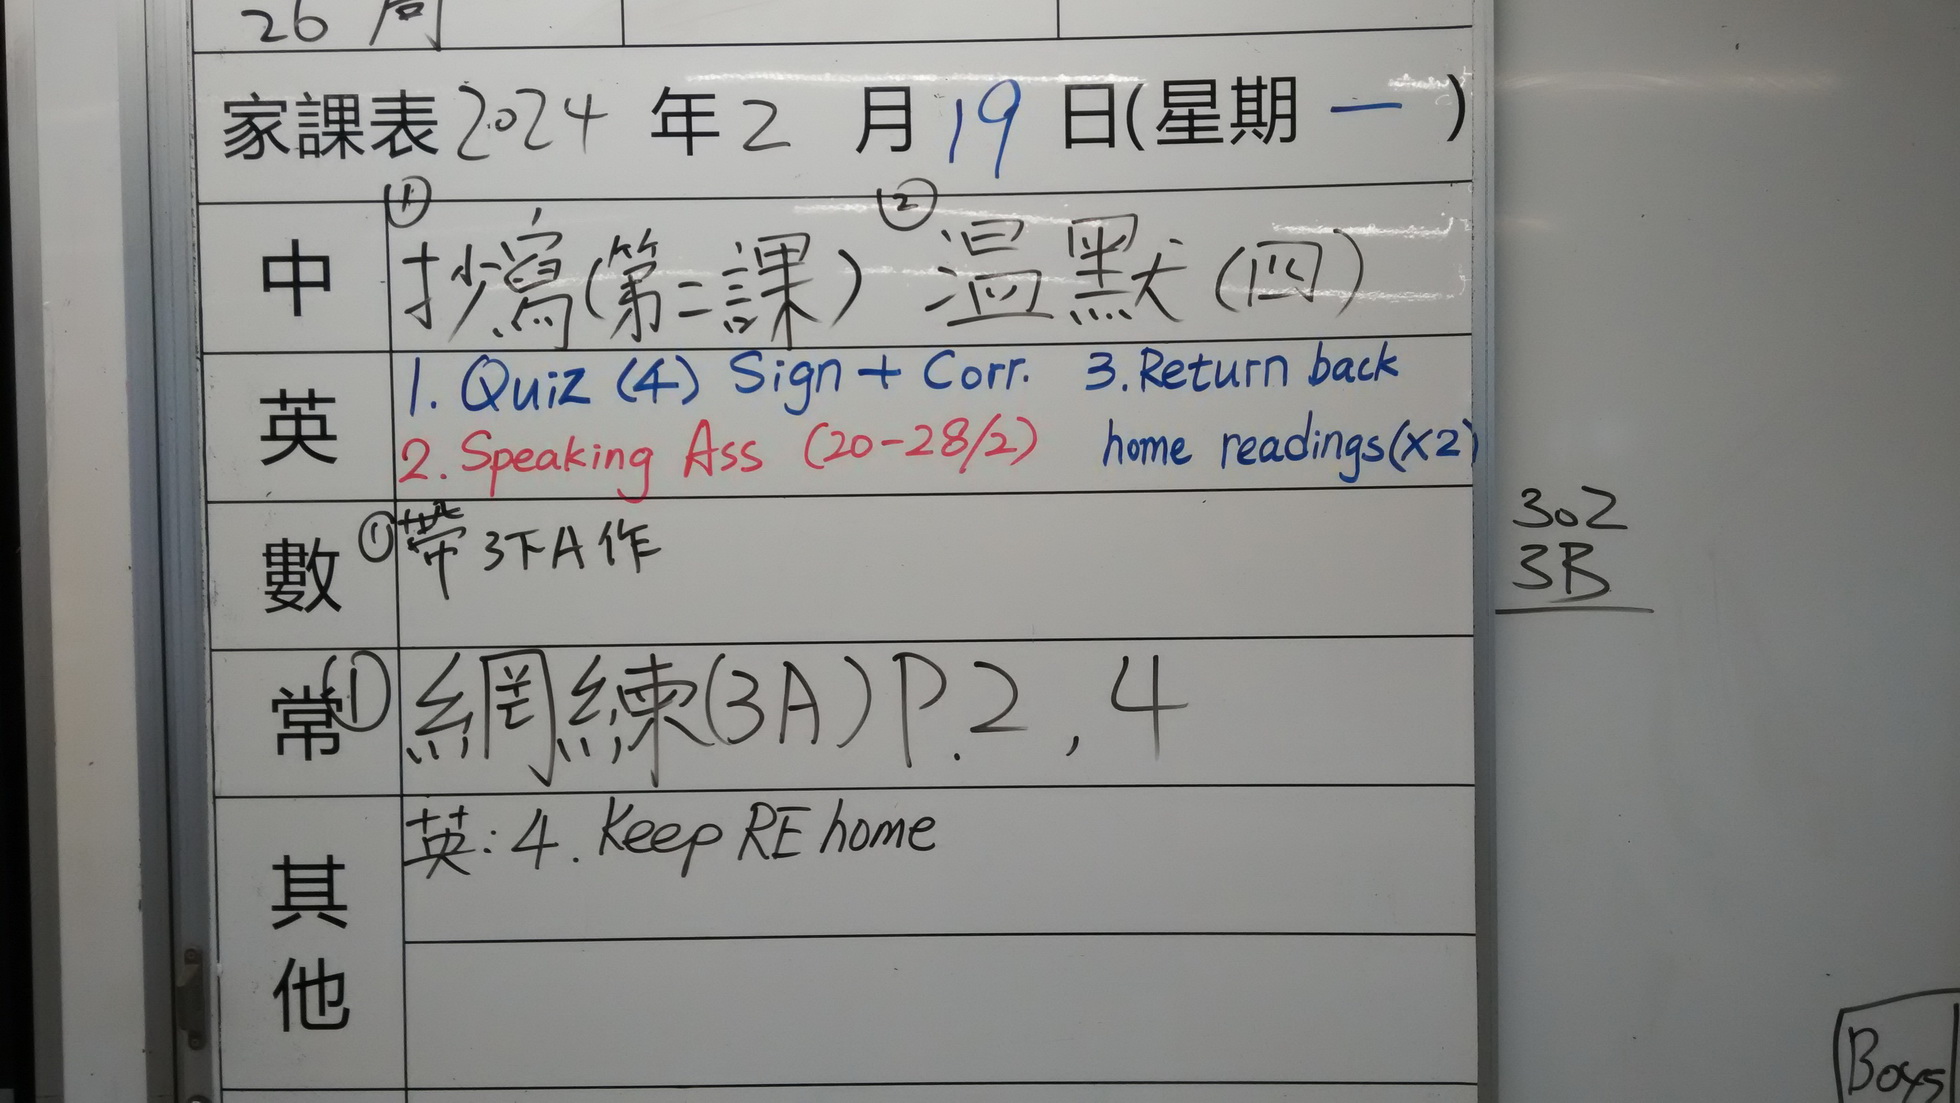 26 周
家課表 2024 年 2 月 19 日(星期 一 )
中 ① 抄寫(第二課) ② 温默(四)
英 1. Quiz (4) Sign + Corr. 3. Return back
2. Speaking Ass (20-28/2) home readings(x2)
數 ① 帶 3下A作
302
3B
常 ① 網練(3A) P.2, 4
其他 英: 4. Keep RE home
Boys